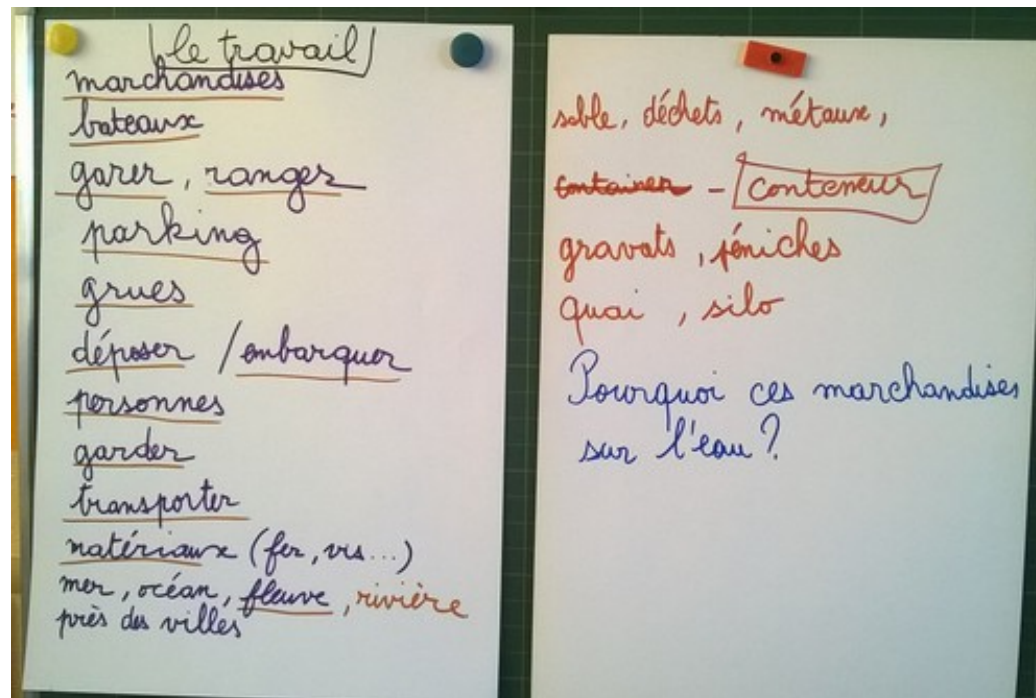 le travail
marchandises
bateaux
garer, ranger
parking
grues
déposer / embarquer
personnes
garder
transporter
matériaux (fer, vis...)
mer, océan, fleuve, rivière
près des villes
sable, déchets, métaux,
container - conteneur
gravats, péniches
quai, silo
Pourquoi ces marchandises
sur l'eau ?